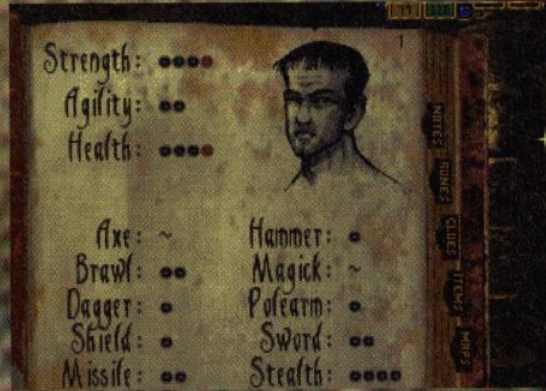 1
Strength: ●●●●
Agility: ●●
Health: ●●●●
Axe: ~
Brawl: ●●
Dagger: ●
Shield: ●
Missile: ●●
Hammer: ●
Magick: ~
Polearm: ●
Sword: ●●
Stealth: ●●●●
NOTES
RUNES
CLUES
ITEMS
MAPS